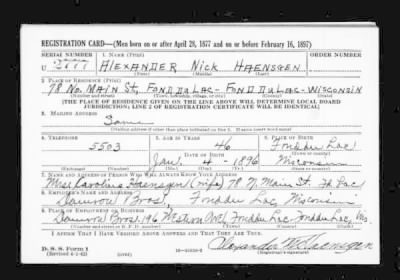 REGISTRATION CARD—(Men born on or after April 28, 1877 and on or before February 16, 1897)
SERIAL NUMBER 1. NAME (Print) ORDER NUMBER
U ALEXANDER NICK HAENSGEN
(First) (Middle) (Last)
2. PLACE OF RESIDENCE (Print)
78 No. MAIN St, FOND DU LAC - FOND DU LAC - WISCONSIN
(Number and street) (Town, township, village, or city) (County) (State)
[THE PLACE OF RESIDENCE GIVEN ON THE LINE ABOVE WILL DETERMINE LOCAL BOARD
JURISDICTION; LINE 2 OF REGISTRATION CERTIFICATE WILL BE IDENTICAL]
3. MAILING ADDRESS
Same
(Mailing address if other than place indicated on line 2. If same insert word same)
4. TELEPHONE 5. AGE IN YEARS 6. PLACE OF BIRTH
5503 46 Fond du Lac
DATE OF BIRTH
Jan. 4 - 1896 Wisconsin
(Exchange) (Number) (Mo.) (Day) (Yr.) (State or country)
7. NAME AND ADDRESS OF PERSON WHO WILL ALWAYS KNOW YOUR ADDRESS
Mrs. Caroline Haensgen (wife) 78 N. Main St. Fd Lac
8. EMPLOYER'S NAME AND ADDRESS
Bros., Fond du Lac, Wisconsin
9. PLACE OF EMPLOYMENT OR BUSINESS
Bros. 196 Fond du Lac Fond du Lac, Wis.
(Number and street or R. F. D. number) (Town) (County) (State)
I AFFIRM THAT I HAVE VERIFIED ABOVE ANSWERS AND THAT THEY ARE TRUE.
D. S. S. Form 1
(Revised 4-1-42)
Alexander N. Haensgen